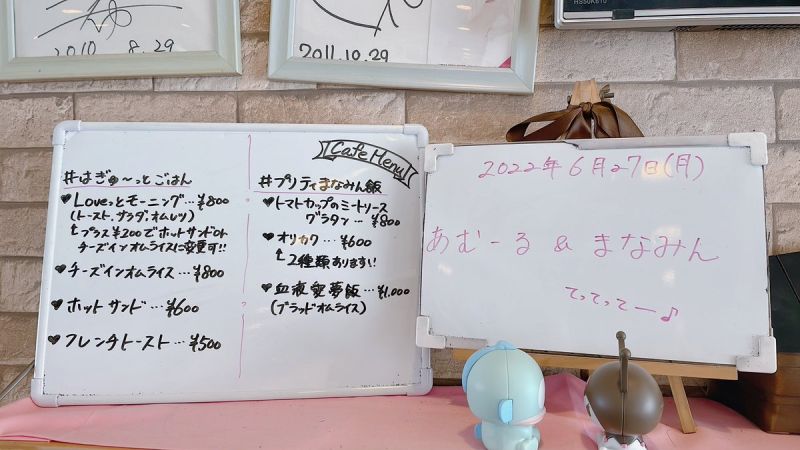 2010.8.29
2011.10.29
HS50K610
Cafe Menu
#はぎゅ～っとごはん
♥Loveっとモーニング…¥800
(トースト、サラダ、オムレツ)
↳プラス¥200でホットサンドor
チーズインオムライスに変更可!!
♥チーズインオムライス…¥800
♥ホットサンド…¥600
♥フレンチトースト…¥500
#プリティまなみん飯
♥トマトカップのミートソース
グラタン…¥800
♥オリカク…¥600
↳2種類あります!!
♥血液夢飯…¥1,000
(ブラッドオムライス)
2022年6月27日(月)
あむーる & まなみん
てってってー♪